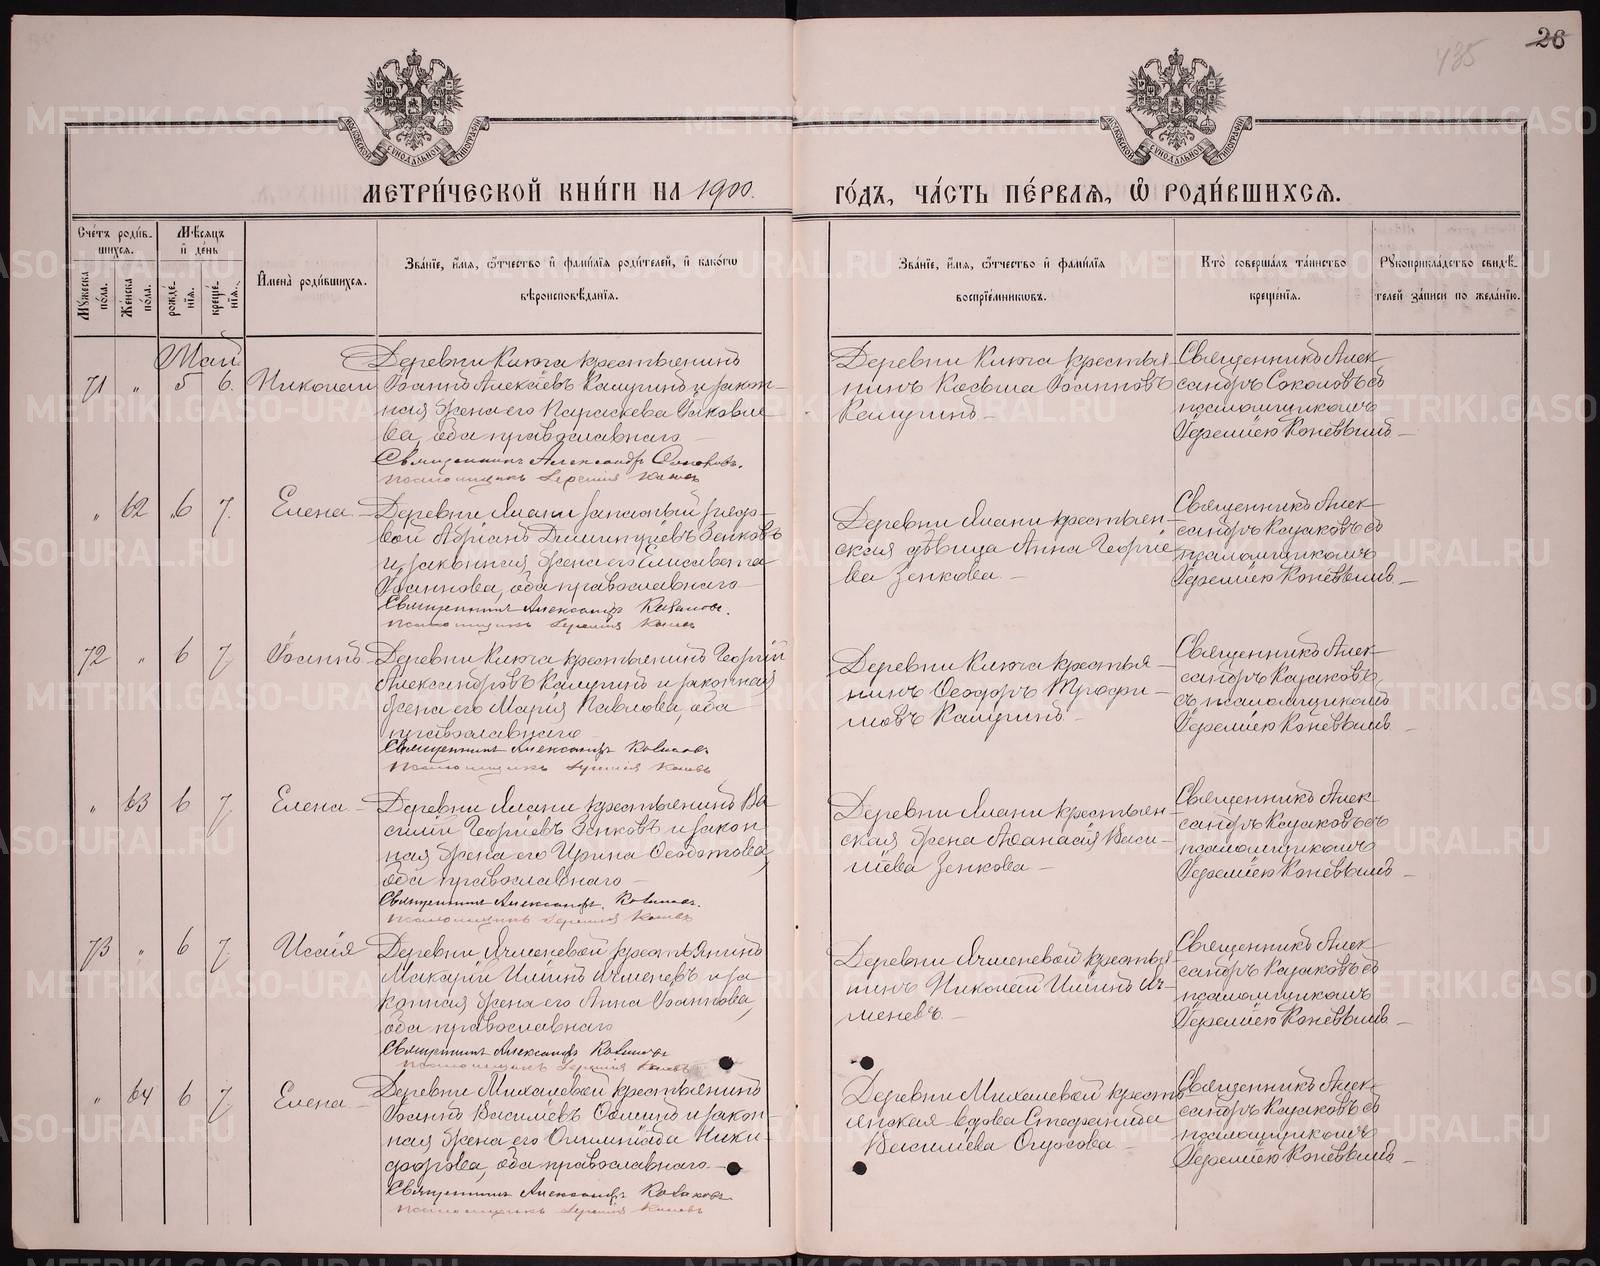 26
435
МЕТРИ́ЧЕСКОЙ КНИ́ГИ НА 1900.
ГО́ДЪ, ЧА́СТЬ ПЕ́РВАѦ, Ѡ РОДИ́ВШИХСѦ.
Сче́тъ роди́в-
шихся.
Мꙋжеска по́ла.
Женска по́ла.
Мѣ́сяцъ и де́нь
рожде́-нїя.
креще́-нїя.
Имена̀ роди́вшихся.
Зва́нїе, и́мя, ѻ́тчество и фами́лїя роди́телей, и како́гѡ
вѣроисповѣ́данїя.
Зва́нїе, и́мя, ѻ́тчество и фами́лїя
воспрїе́мникѡвъ.
Кто̀ соверша́лъ та́инство
креще́нїя.
Рꙋкоприкла́дство свидѣ́-
телей за́писи по жела́нїю.
Май
71 " 5 6. Николай
Деревни Ключа крестьянинъ
Іоаннъ Алексѣевъ Калугинъ и закон-
ная жена его Параскева Іаковле-
ва, оба православнаго
Священникъ Александръ Соколовъ.
Псаломщикъ Іеремія Коневъ
Деревни Ключа крестья-
нинъ Косьма Іоанновъ
Калугинъ
Священникъ Алек-
сандръ Соколовъ съ
псаломщикомъ
Іереміею Коневымъ
" 62 6 7. Елена
Деревни запасный рядо-
вой Адріанъ Димитріевъ Зенковъ
и законная жена его Елисавета
Іоаннова, оба православнаго
Священникъ Александръ Казаковъ.
Псаломщикъ Іеремія Коневъ
Деревни крестьян-
ская дѣвица Анна Георгіе-
ва Зенкова
Священникъ Алек-
сандръ Казаковъ съ
псаломщикомъ
Іереміею Коневымъ
72 " 6 7 Іоаннъ
Деревни Ключа крестьянинъ Георгій
Александровъ Калугинъ и законная
жена его Марія Павлова, оба
православнаго
Священникъ Александръ Казаковъ
Псаломщикъ Іеремія Коневъ
Деревни Ключа крестья-
нинъ Ѳеодоръ Трофи-
мовъ Калугинъ
Священникъ Алек-
сандръ Казаковъ
съ псаломщикомъ
Іереміею Коневымъ
" 63 6 7 Елена
Деревни крестьянинъ Ва-
силій Георгіевъ Зенковъ и закон-
ная жена его Ирина Ѳеодотова,
оба православнаго
Священникъ Александръ Казаковъ.
Псаломщикъ Іеремія Коневъ
Деревни крестьян-
ская жена Аѳанасія Васи-
ліева Зенкова
Священникъ Алек-
сандръ Казаковъ съ
псаломщикомъ
Іереміею Коневымъ
73 " 6 7 Исаія
Деревни Ячменевой крестьянинъ
Макарій Ильинъ Ячменевъ и за-
конная жена его Анна Іоаннова,
оба православнаго
Священникъ Александръ Казаковъ
Псаломщикъ Іеремія Коневъ
Деревни Ячменевой крестья-
нинъ Николай Ильинъ Яч-
меневъ
Священникъ Алек-
сандръ Казаковъ съ
псаломщикомъ
Іереміею Коневымъ
" 64 6 7 Елена
Деревни Михалевой крестьянинъ
Іоаннъ Василіевъ и закон-
ная жена его Олимпіада Ники-
форова, оба православнаго
Священникъ Александръ Казаковъ
Псаломщикъ Іеремія Коневъ
Деревни Михалевой кресть-
янская вдова Стефанида
Василіева
Священникъ Алек-
сандръ Казаковъ съ
псаломщикомъ
Іереміею Коневымъ
METRIKI.GASO-URAL.RU